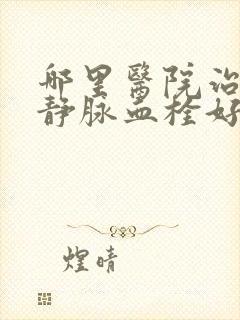 哪里醫院治
静脉血栓好
煌晴